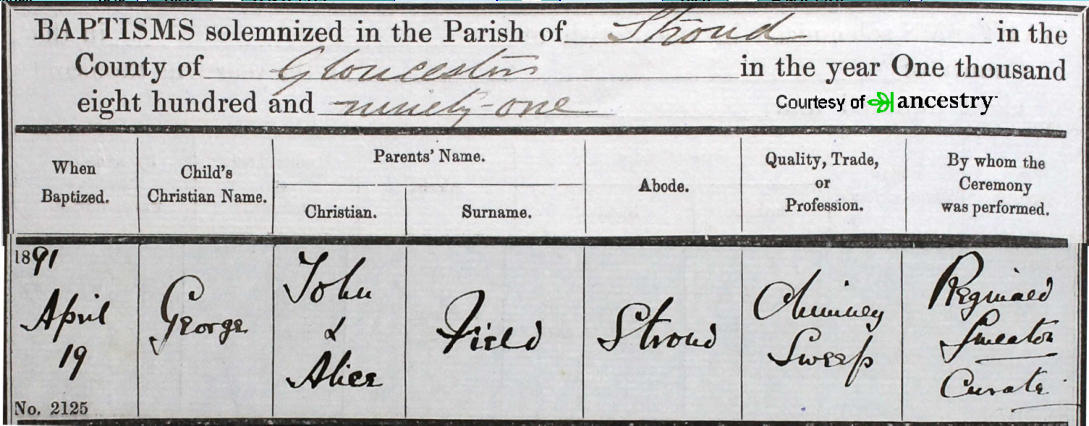 BAPTISMS solemnized in the Parish of Stroud in the
County of Gloucester in the year One thousand
eight hundred and ninety-one
Courtesy of ancestry
When Baptized.
Child's Christian Name.
Parents' Name.
Christian.
Surname.
Abode.
Quality, Trade, or Profession.
By whom the Ceremony was performed.
1891
April
19
George
John
&
Alice
Field
Stroud
Chimney
Sweep
Reginald
Smeaton
Curate
No. 2125